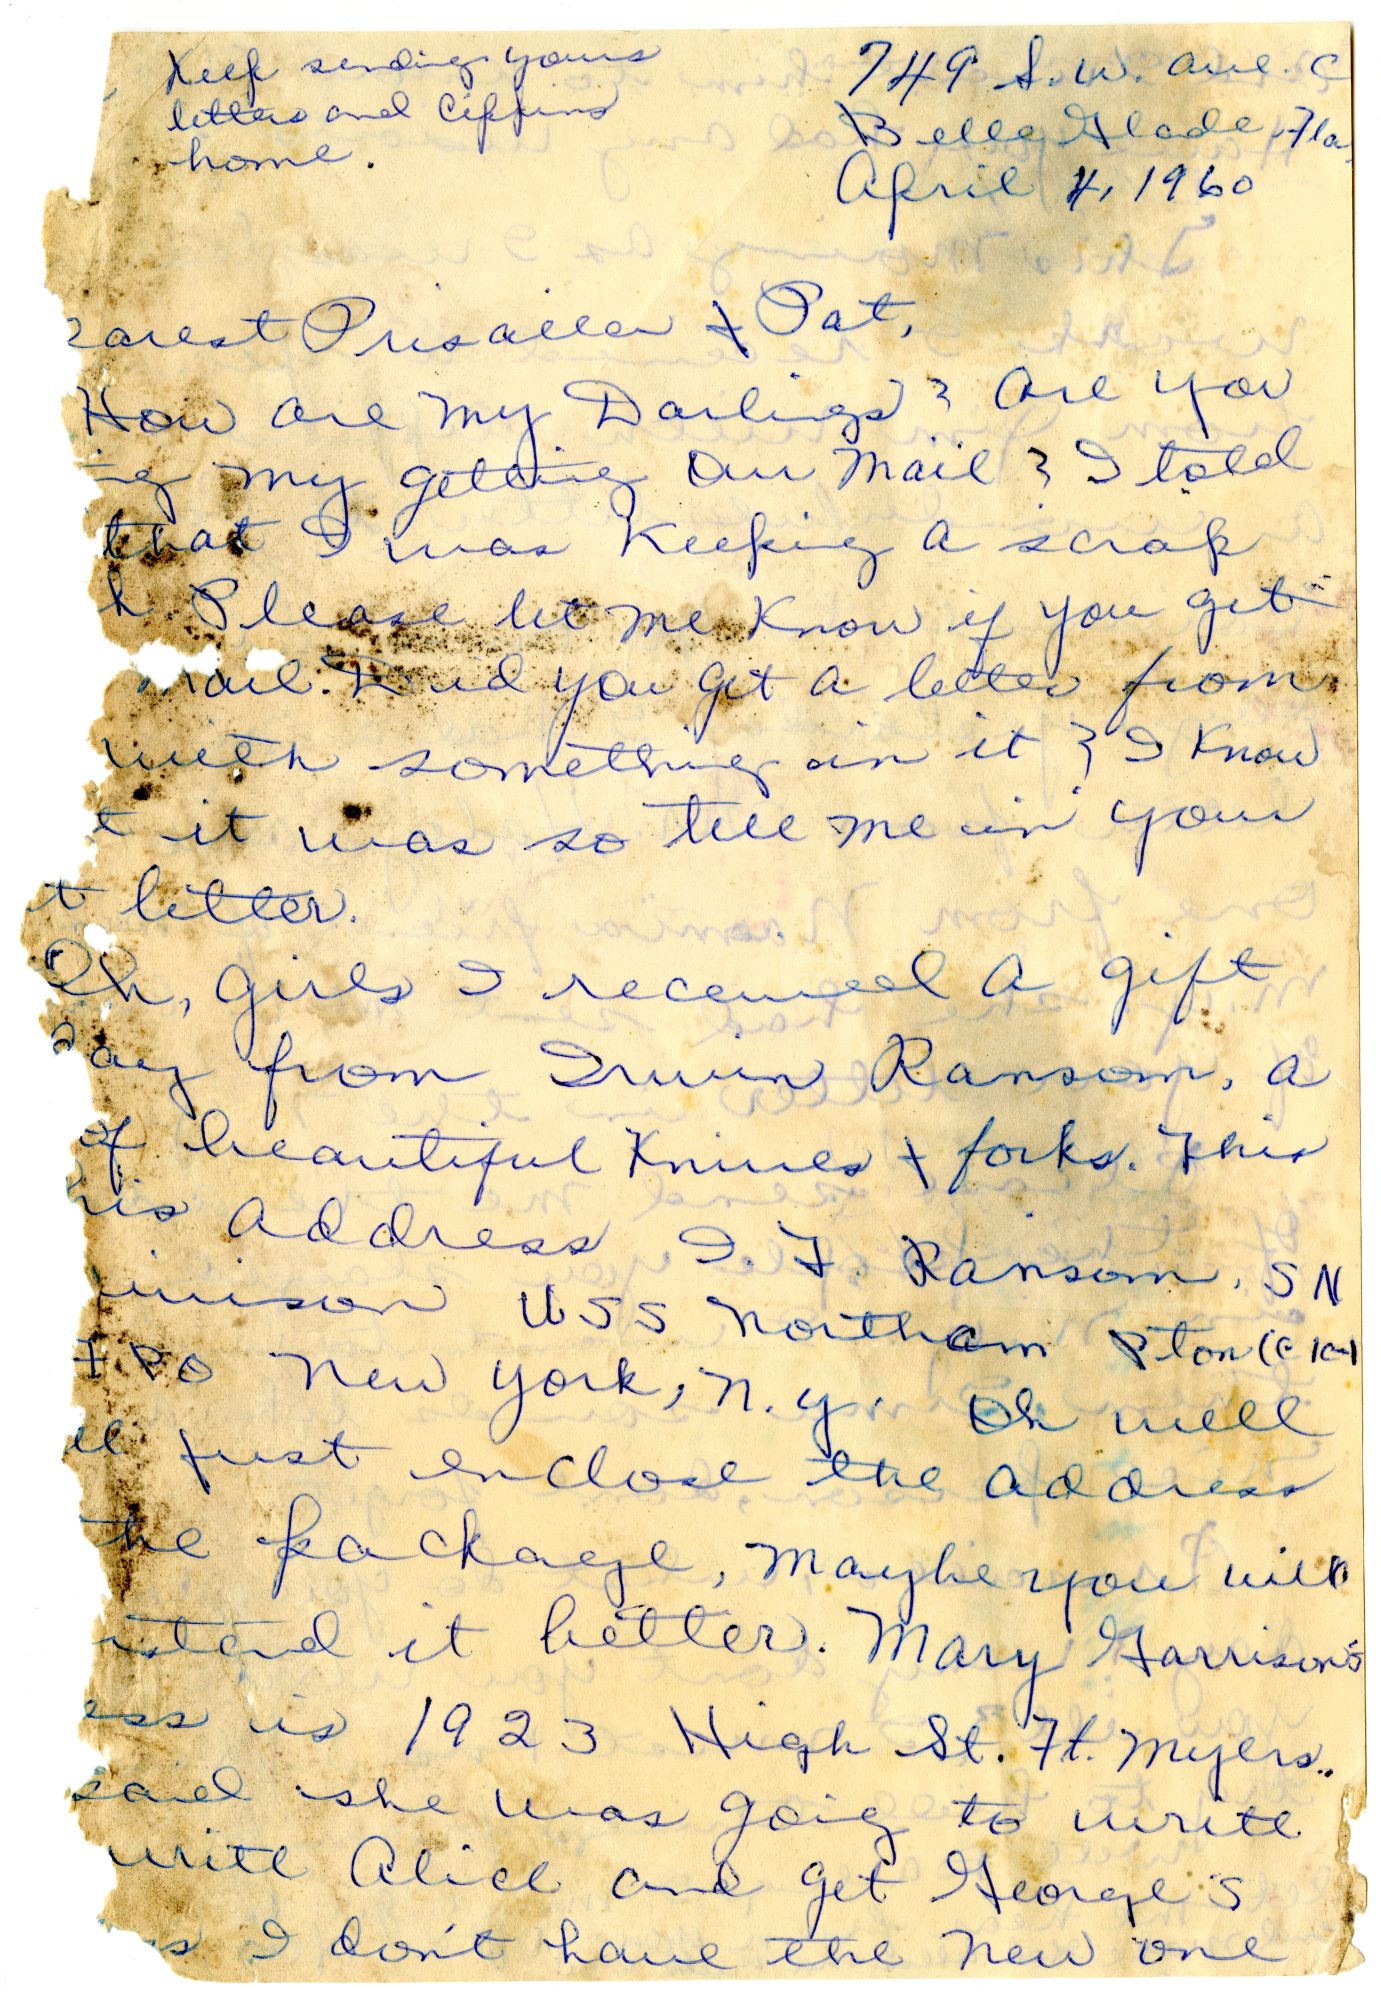 Keep sending yours
letters and Cippins
home.
749 S.W. Ave. C
Belle Glade, Fla.
April 4, 1960
earest Prisailla + Pat,
How are my Darlings? Are you
ng my getting Our Mail? I told
that I was Keeping a scrap
k. Please let me Know if you get
mail. Did you get a letter from
with something in it? I Know
t it was so tell me in your
t letter.
Oh, girls I received a gift
day from Irwin Ransom, a
of beautiful Knives + forks. This
his address I. F. Ransom, SN
USS Northam Pton (C
FPO New York, N.Y. Oh well
ll just enclose the address
the package, Maybe you will
rstand it better. Mary Garrison's
ess is 1923 High St. Ft. Myers..
said she was goig to write
write Alice and get George's
I don't have the new one